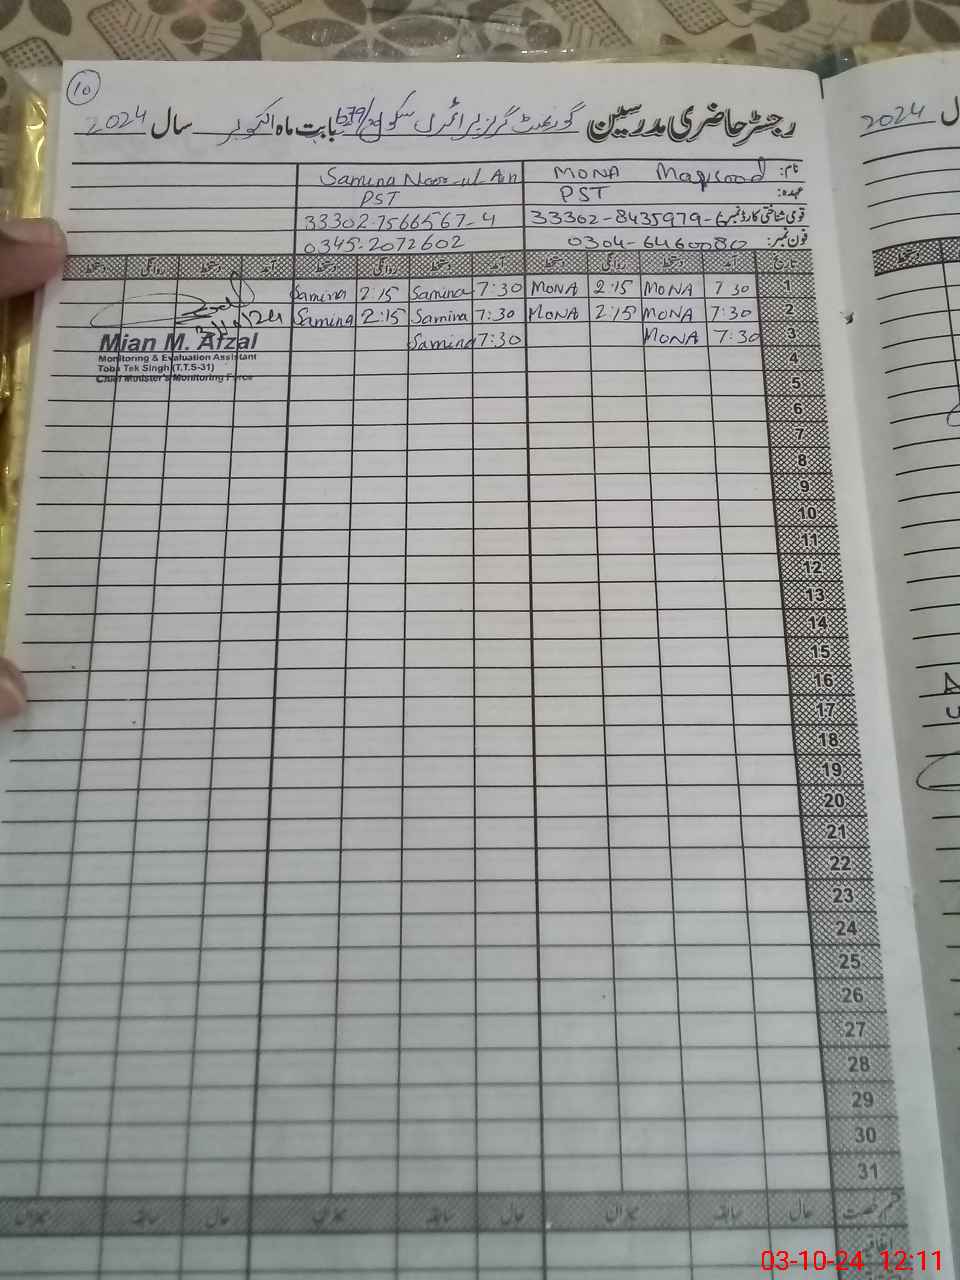 10
رجسٹر حاضری مدرسین گورنمنٹ گرلز پرائمری سکول بابت ماہ اکتوبر سال 2024
نام: MONA Maqsood Samina Noor-ul Ain
عہدہ: PST PST
قومی شناختی کارڈ نمبر: 33302-8435979-6 33302-7566567-4
فون نمبر: 0304-6460080 0345-2072602
تاریخ آمد دستخط روانگی دستخط آمد دستخط روانگی دستخط آمد دستخط روانگی دستخط
1 7 30 MONA 2:15 MONA 7:30 Samina 2:15 Samina
2 7:30 MONA 2:15 MONA 7:30 Samina 2:15 Samina
3 7:30 MONA 7:30 Samina
Mian M. Afzal
Monitoring & Evaluation Assistant
Toba Tek Singh (T.T.S-31)
Chief Minister's Monitoring Force
4
5
6
7
8
9
10
11
12
13
14
15
16
17
18
19
20
21
22
23
24
25
26
27
28
29
30
31
قسم رخصت حال سابقہ میزان حال سابقہ میزان حال سابقہ میزان
اتفاقیہ
2024
03-10-24 12:11